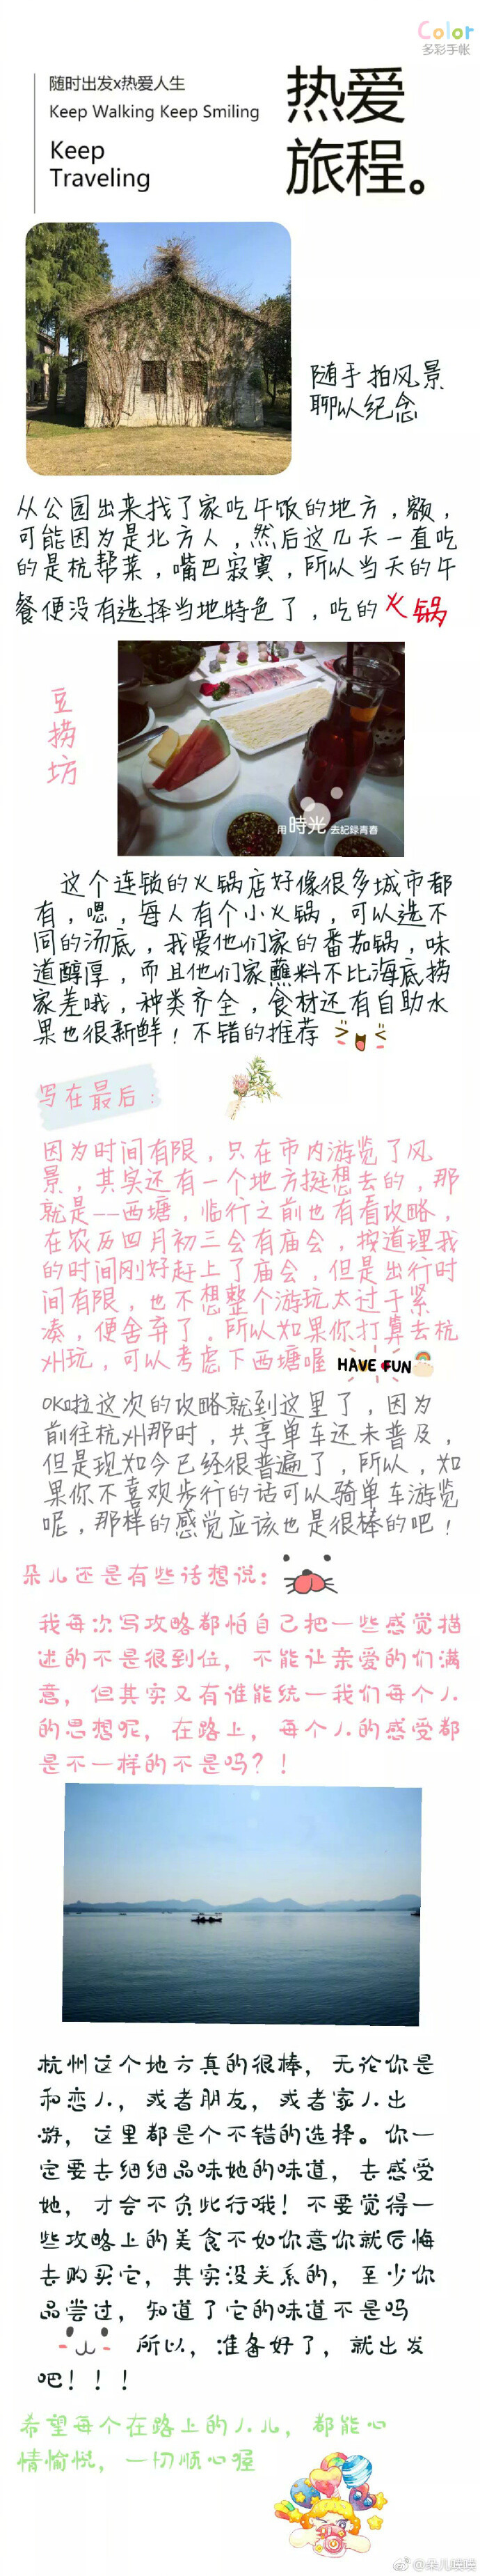 Color
多彩手帐
随时出发x热爱人生
Keep Walking Keep Smiling
Keep
Traveling
热爱
旅程。
随手拍风景
聊以纪念
从公园出来找了家吃午饭的地方，额，
可能因为是北方人，然后这几天一直吃
的是杭帮菜，嘴巴寂寞，所以当天的午
餐便没有选择当地特色了，吃的火锅
豆
捞
坊
用時光去記録青春
这个连锁的火锅店好像很多城市都
有，嗯，每人有个小火锅，可以选不
同的汤底，我爱他们家的番茄锅，味
道醇厚，而且他们家蘸料不比海底捞
家差哦，种类齐全，食材还有自助水
果也很新鲜！不错的推荐
写在最后：
因为时间有限，只在市内游览了风
景，其实还有一个地方挺想去的，那
就是——西塘，临行之前也有看攻略，
在农历四月初三会有庙会，按道理我
的时间刚好赶上了庙会，但是出行时
间有限，也不想整个游玩太过于紧
凑，便舍弃了。所以如果你打算去杭
州玩，可以考虑下西塘喔 HAVE FUN
OK啦这次的攻略就到这里了，因为
前往杭州那时，共享单车还未普及，
但是现如今已经很普遍了，所以，如
果你不喜欢步行的话可以骑单车游览
呢，那样的感觉应该也是很棒的吧！
朵儿还是有些话想说：
我每次写攻略都怕自己把一些感觉描
述的不是很到位，不能让亲爱的们满
意，但其实又有谁能统一我们每个人
的思想呢，在路上，每个人的感受都
是不一样的不是吗？！
杭州这个地方真的很棒，无论你是
和恋人，或者朋友，或者家人出
游，这里都是个不错的选择。你一
定要去细细品味她的味道，去感受
她，才会不负此行哦！不要觉得一
些攻略上的美食不如你意你就后悔
去购买它，其实没关系的，至少你
品尝过，知道了它的味道不是吗
所以，准备好了，就出发
吧！！！
希望每个在路上的人儿，都能心
情愉悦，一切顺心喔
@朵儿唛唛